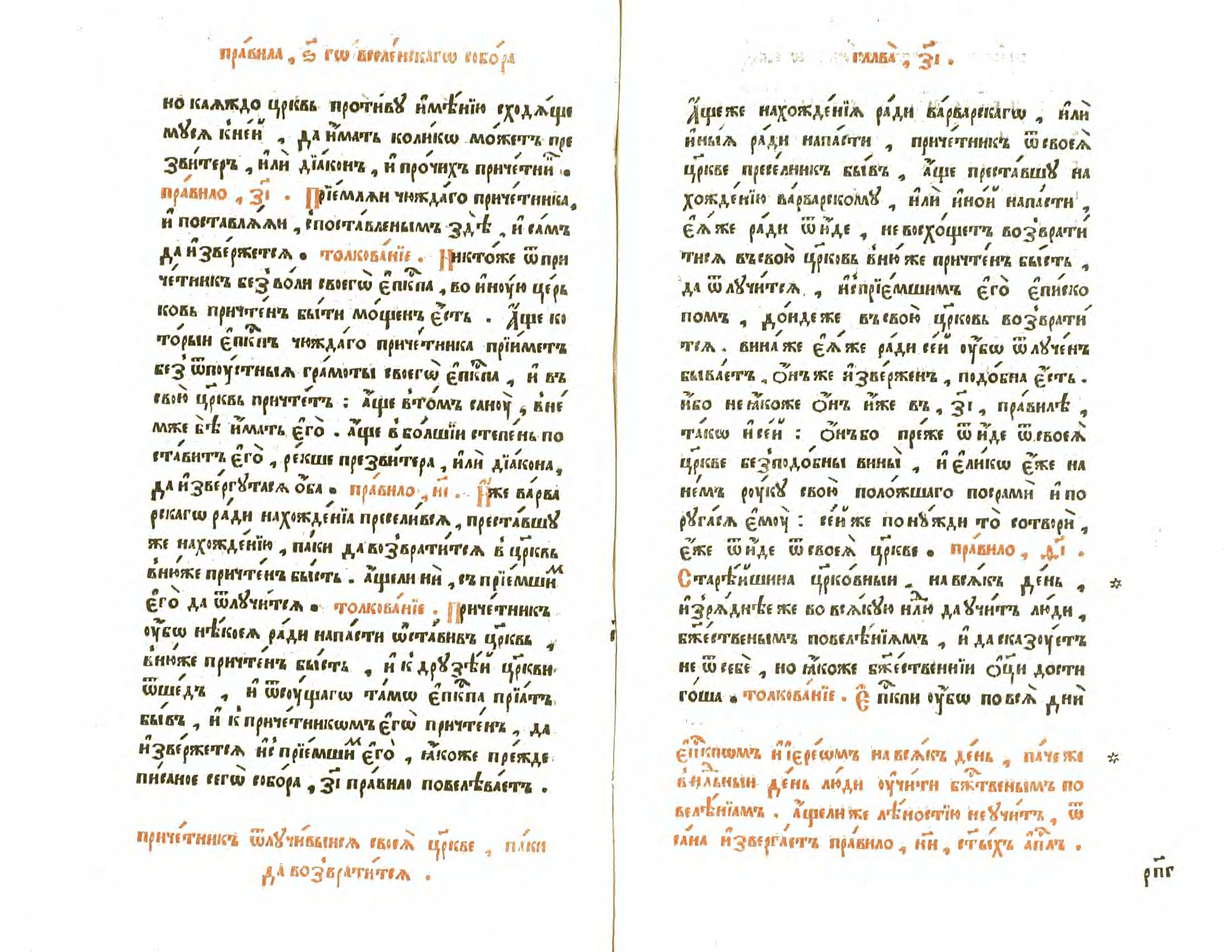 пра́вила , ѕ҃ гѡ вселе́нскагѡ собо́ра
но каѧждо цр҃кьвь проти́вꙋ и҆мѣ́нїю сходѧ́ще
мꙋсѧ кне́й , да и҆́мать коли́кѡ мо́жетъ пре
зви́теръ , и҆лѝ дїа́конъ , и҆ про́чихъ приче́тни҆ .
пра́вило , з҃і . Прїе́млѧи чюжда́го приче́тника ,
и҆ поставлѧ́ѧи , споста́вленымъ здѣ̀ , и҆ са́мъ
да и҆зве́ржетсѧ . толкова́нїе . Никто́же ѿ при
че́тникъ без̾ во́ли своегѡ̀ є҆пк҃па , во и҆ну́ю це́рь
ковь причте́нъ бы́ти мо́щенъ є҆́сть . А҆́ще ко
торы́и є҆пк҃пъ чюжда́го приче́тника прїи́метъ
без̾ ѿпꙋ́стныѧ гра́моты своегѡ̀ є҆пк҃па , и҆ въ
свою̀ цр҃ковь причте́тъ : а҆́ще вто́мъ санꙋ̀ , вне́
мже бѣ̀ и҆́мать є҆го̀ . а҆́ще в бо́лшїи степе́нь по
ста́витъ є҆го̀ , ре́кше презви́тера , и҆лѝ дїа́кона ,
да и҆зве́ргꙋтсѧ ѻ҆́ба . пра́вило , и҃і . И҆́же варва
рскагѡ ра́ди нахожде́нїѧ пресели́всѧ , преста́вшꙋ
же нахожде́нїю , па́ки да возврати́тсѧ в цр҃ковь
вню́же причте́нъ бы́сть . а҆́щели нѝ , съ прїе́мшим
є҆го̀ да ѿлꙋчи́тсѧ . толкова́нїе . Приче́тникъ
ᲂу҆́бѡ нѣ́коеѧ ра́ди напа́сти ѡ҆ста́вивъ цр҃ковь ,
вню́же причте́нъ бы́сть , и҆ к дрꙋзѣ́й цр҃кви
ѿше́дъ , и҆ ѿсꙋ́щагѡ та́мѡ є҆пк҃па прїѧ́тъ
бы́въ , и҆ к приче́тникѡмъ є҆гѡ̀ причте́нъ , да
и҆зве́ржетсѧ и҆с прїе́мшим є҆го̀ , ꙗ҆́коже пре́жде
пи́саное сегѡ̀ собо́ра , з҃і пра́вило повелѣва́етъ .
приче́тникъ ѿлꙋчи́выисѧ своеѧ̀ цр҃кве , па́ки
да возврати́тсѧ .
глава̀ , з҃і .
А҆́щеже нахожде́нїѧ ра́ди ва́рварскагѡ , и҆лѝ
и҆ны́ѧ ра́ди напа́сти , приче́тникъ ѿ своеѧ̀
цр҃кве пресе́лникъ бы́въ , а҆́ще преста́вшꙋ на
хожде́нїю ва́рварскомꙋ , и҆лѝ и҆но́й напа́сти ,
є҆ѧ́же ра́ди ѿи́де , не восхо́щетъ возврати́
тисѧ въ свою̀ цр҃ковь вню́же причте́нъ бы́сть ,
да ѿлꙋчи́тсѧ , и҆с прїе́мшимъ є҆го̀ є҆пи́ско
помъ , до́ндеже въ свою̀ цр҃ковь возврати́
тсѧ . вина́же є҆ѧ́же ра́ди се́й ᲂу҆́бѡ ѿлꙋче́нъ
быва́етъ , ѻ҆́нъже и҆зве́рженъ , подо́бна є҆́сть .
и҆́бо не ꙗ҆́коже ѻ҆́нъ и҆́же въ , з҃і , пра́вилѣ ,
та́кѡ и҆ се́й : ѻ҆́нъбо пре́же ѿи́де ѿ своеѧ̀
цр҃кве безподо́бны вины̀ , и҆ є҆ли́кѡ є҆́же на
не́мъ рꙋ́кꙋ свою̀ поло́жшаго посрамѝ и҆ по
рꙋга́сѧ є҆мꙋ̀ : се́йже по нꙋ́жди то̀ сотворѝ ,
є҆́же ѿи́де ѿ своеѧ̀ цр҃кве . пра́вило , ѳ҃і .
Старѣ́йшина цр҃ко́вныи , на всѧ́къ де́нь ,
и҆зрѧ́днѣе же во всѧ́кꙋю нл҃ю да ꙋчи́тъ лю́ди ,
бж҃е́ственымъ повелѣ́нїѧмъ , и҆ да сказꙋ́етъ
не ѿ себѐ , но ꙗ҆́коже бж҃е́ственїи ѻ҆ц҃ы дости
го́ша . толкова́нїе . Є҆пк҃пи ᲂу҆́бѡ по всѧ̀ дни̑
є҆пк҃пѡмъ и҆ і҆ере́ѡмъ на всѧ́къ де́нь , па́че же
в нл҃ьныи де́нь лю́ди ᲂу҆чи́ти бж҃твенымъ по
велѣ́нїамъ . а҆́щели же лѣ́ностїю не ꙋчи́тъ , ѿ
са́на и҆зверга́етъ пра́вило , н҃и , ст҃ы́хъ а҆пл҃ъ .
рп҃г